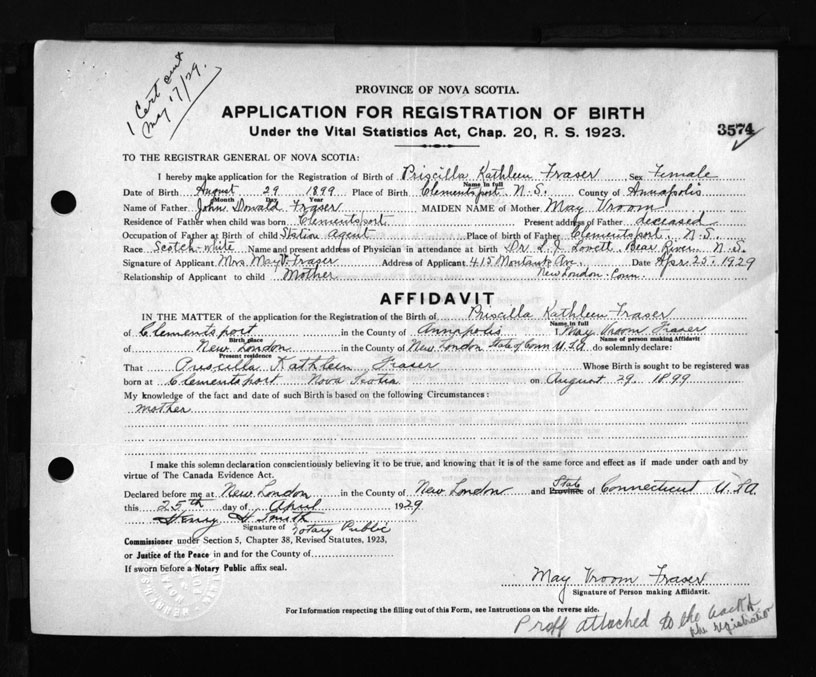 1 Cert out
May 17/29.
PROVINCE OF NOVA SCOTIA.
APPLICATION FOR REGISTRATION OF BIRTH
Under the Vital Statistics Act, Chap. 20, R. S. 1923.
3574
TO THE REGISTRAR GENERAL OF NOVA SCOTIA:
I hereby make application for the Registration of Birth of Priscilla Kathleen Fraser Sex Female
Name in full
Date of Birth August 29 1899 Place of Birth Clementsport N.S. County of Annapolis
Month Day Year
Name of Father John Donald Fraser MAIDEN NAME of Mother May Vroom
Residence of Father when child was born Clementsport Present address of Father deceased
Occupation of Father at Birth of child Station Agent Place of birth of Father Clementsport, N.S.
Race Scotch-white Name and present address of Physician in attendance at birth Dr. L. J. Lovett Bear River N.S.
Signature of Applicant Mrs May V. Fraser Address of Applicant 415 Montauk Ave. Date Apr. 25. 1929
Relationship of Applicant to child Mother New London. Conn.
AFFIDAVIT
IN THE MATTER of the application for the Registration of the Birth of Priscilla Kathleen Fraser
Name in full
of Clementsport in the County of Annapolis I, May Vroom Fraser
Birth place Name of person making Affidavit
of New London in the County of New London State of Conn U.S.A do solemnly declare:
Present residence
That Priscilla Kathleen Fraser Whose Birth is sought to be registered was
born at Clementsport Nova Scotia on August 29 1899
My knowledge of the fact and date of such Birth is based on the following Circumstances:
mother
I make this solemn declaration conscientiously believing it to be true, and knowing that it is of the same force and effect as if made under oath and by
virtue of The Canada Evidence Act.
Declared before me at New London in the County of New London and State Province of Connecticut U.S.A.
this 25th day of April 1929
Henry H. Smith
Signature of Notary Public
Commissioner under Section 5, Chapter 38, Revised Statutes, 1923,
or Justice of the Peace in and for the County of
If sworn before a Notary Public affix seal.
May Vroom Fraser
Signature of Person making Affidavit.
For Information respecting the filling out of this Form, see Instructions on the reverse side.
Proff attached to the back of
the registration